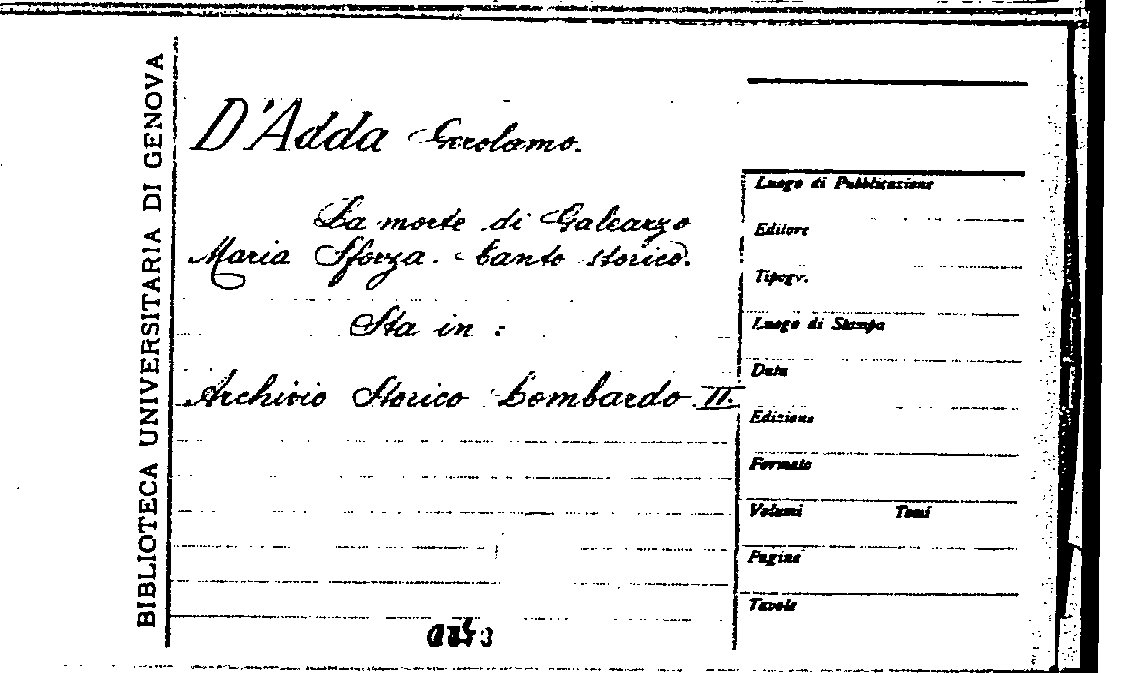 BIBLIOTECA UNIVERSITARIA DI GENOVA
D'Adda Girolamo.
La morte di Galeazzo
Maria Sforza. Canto storico.
Sta in :
Archivio Storico Lombardo II.
Luogo di Pubblicazione
Editore
Tipogr.
Luogo di Stampa
Data
Edizione
Formato
Volumi Tomi
Pagine
Tavole